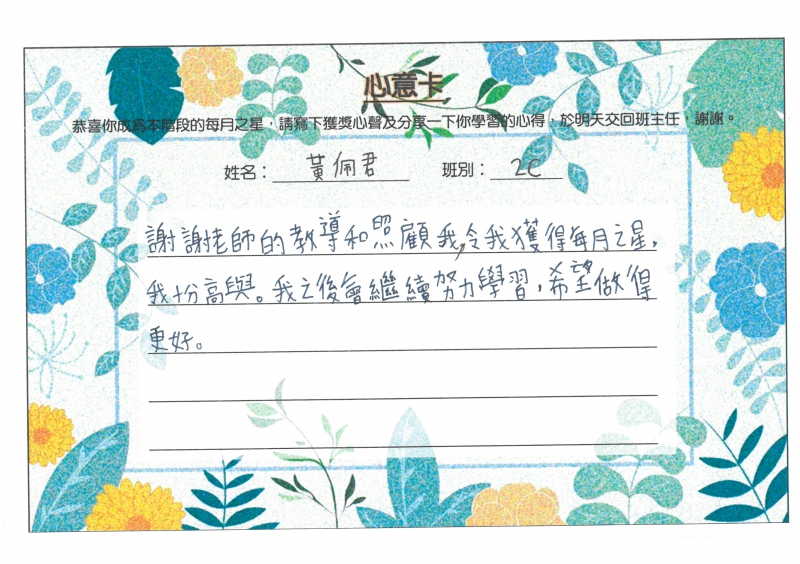 心意卡
恭喜你成為本階段的每月之星，請寫下獲獎心聲及分享一下你學習的心得，於明天交回班主任，謝謝。
姓名：黃佩君 班別：2C
謝謝老師的教導和照顧我，令我獲得每月之星，
我十份高興。我之後會繼續努力學習，希望做得
更好。